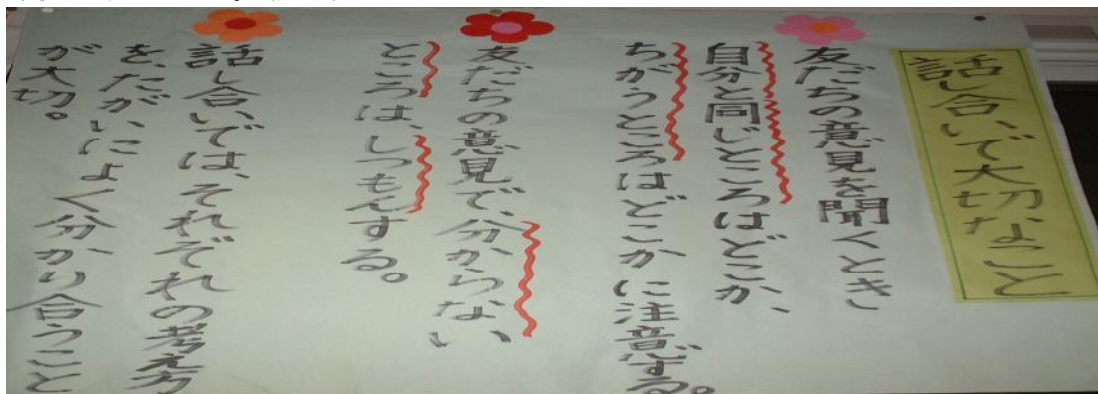 話し合いで大切なこと
友だちの意見を聞くとき
自分と同じところはどこか、
ちがうところはどこかに注意する。
友だちの意見で、分からない
ところは、しつもんする。
話し合いでは、それぞれの考え方
を、たがいによく分かり合うこと
が大切。